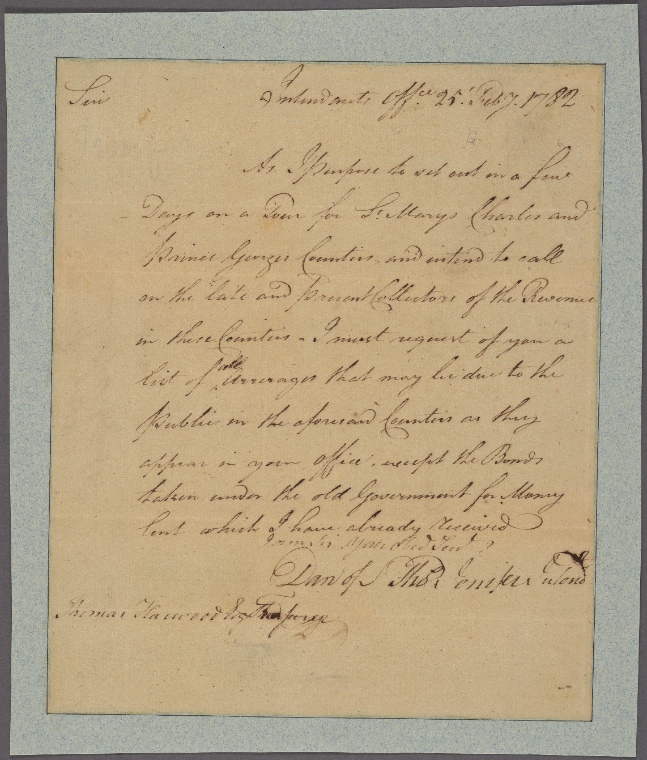 Sir Intendants Offce 25t Feby. 1782
As I purpose to set out in a few
Days on a Tour for St Marys Charles and
Prince Georges Counties and intend to call
on the late and present Collectors of the Revenue
in these Counties - I must request of you a
list of all Arrerages that may be due to the
Public in the aforesaid Counties as they
appear in your office, except the Bonds
taken under the old Government for Money
lent which I have already received
I am Sir Your Obed Servt
Dan of St Thos Jenifer Intend
Thomas Harwood Esq Treasurer